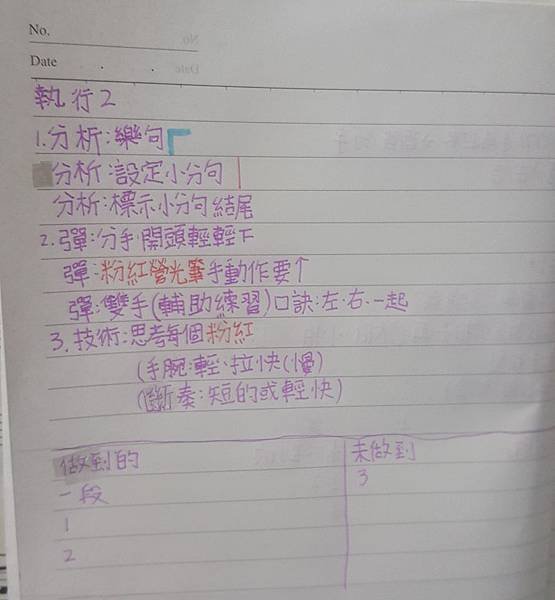 No.
Date . .
執行2
1.分析:樂句
分析:設定小分句
分析:標示小分句結尾
2.彈:分手開頭輕輕下
彈:粉紅螢光筆手動作要↑
彈:雙手(輔助練習)口訣:左、右、一起
3.技術:思考每個粉紅
(手腕:輕、拉快(慢)
(斷奏:短的或輕快)
做到的
未做到
一段
3
1
2